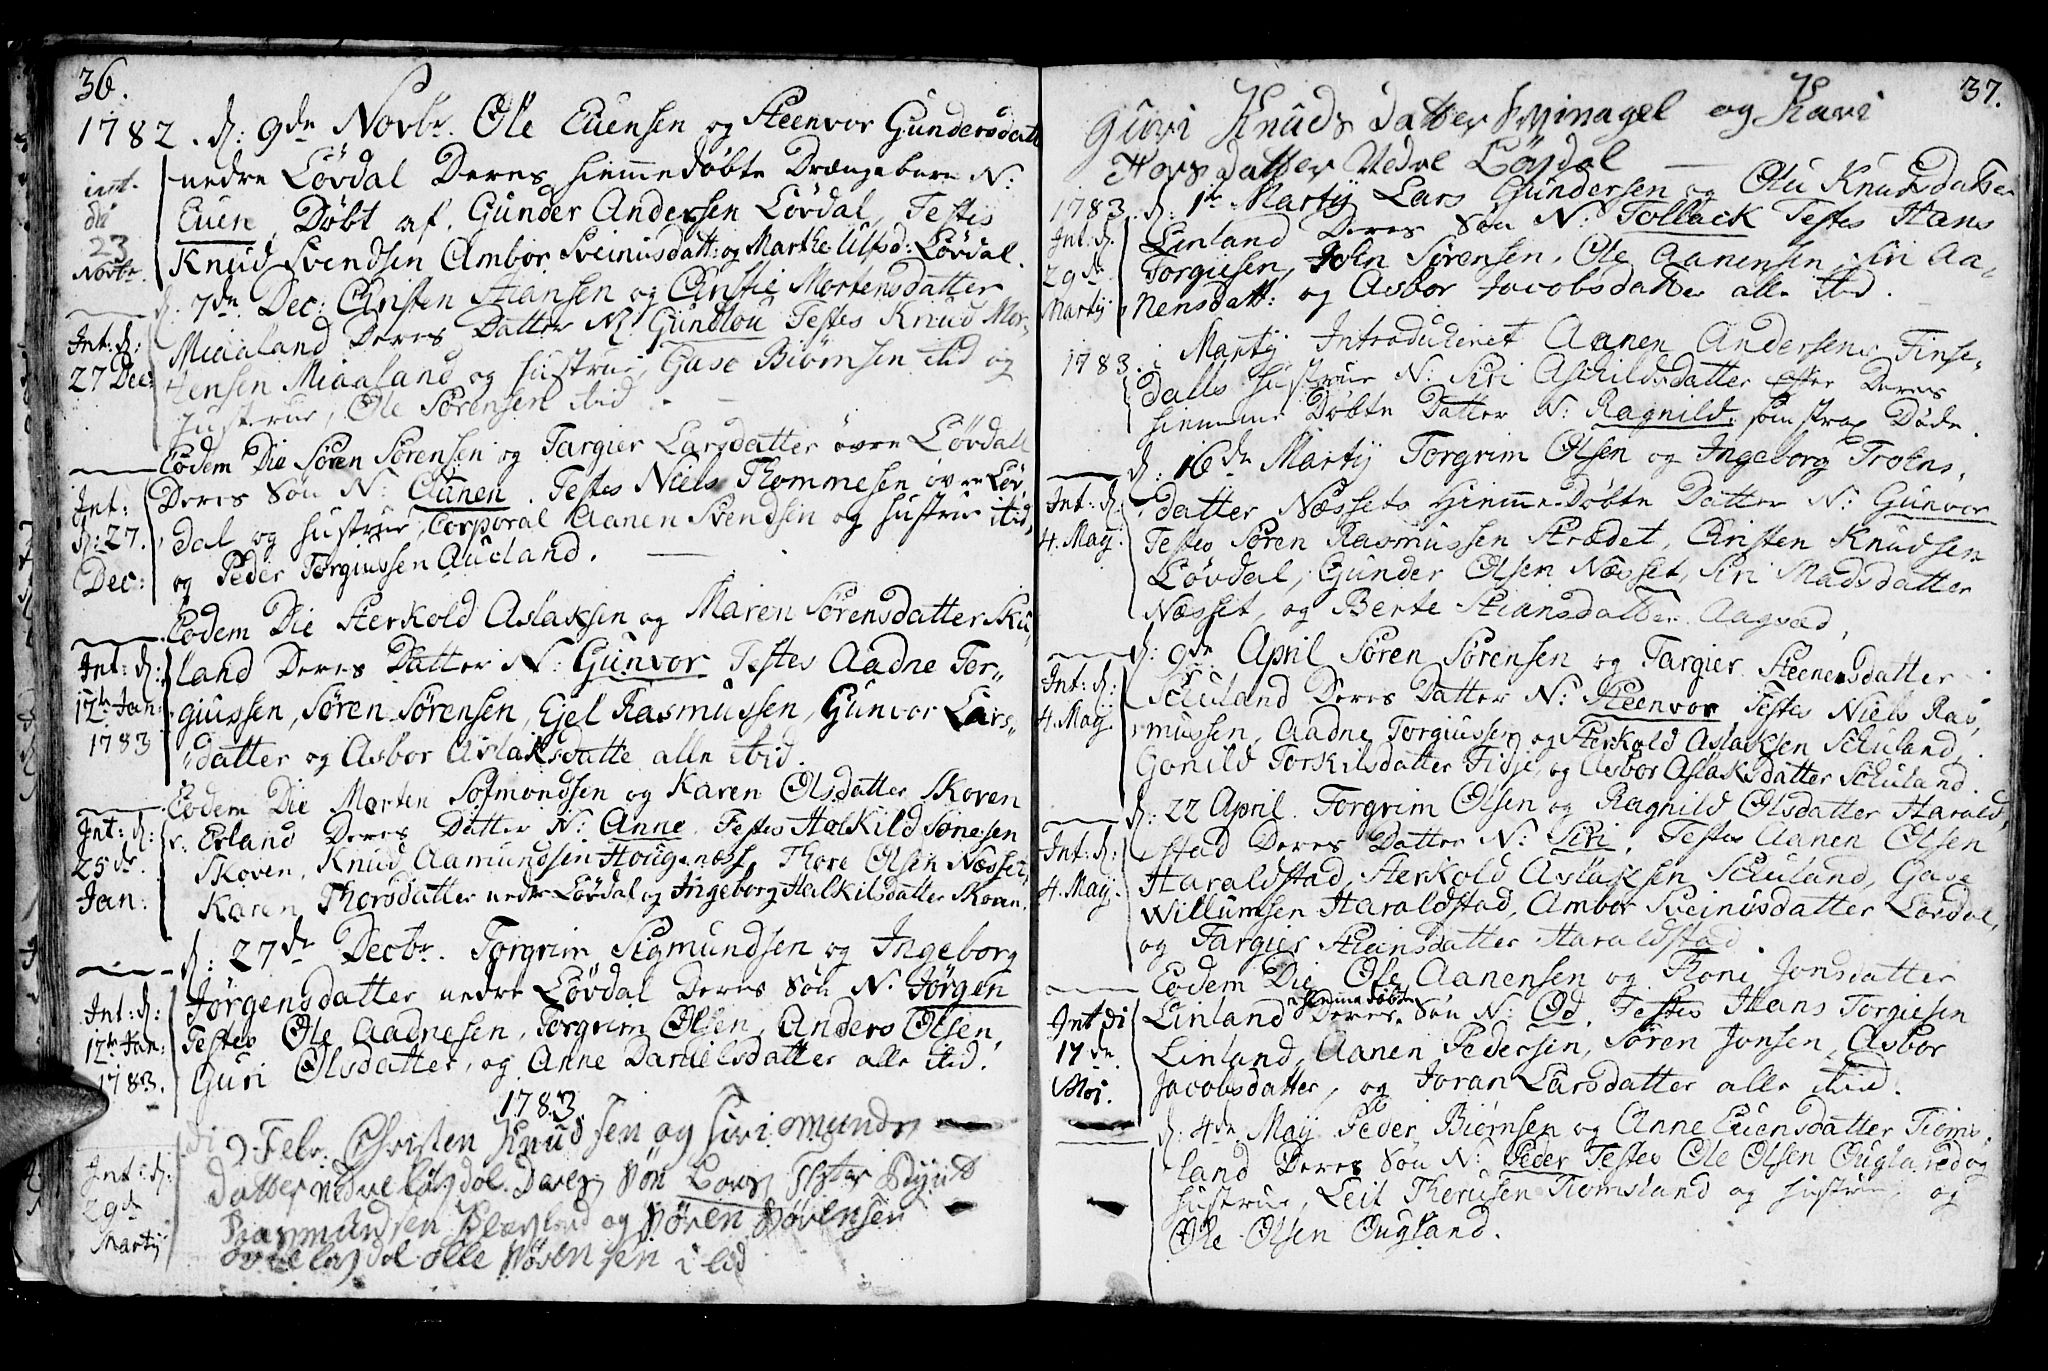 36.
1782. d: 9de Novbr. Ole Euensen og Steenvor Gundersdatt
nedre Lövdal Deres hiemmedöbte Drængebarn N:
int.
die
23
Novbr.
Euen, Döbt af Gunder Andersen Lövdal, Testes
Knud Svendsen Ambor Sveinusdatt: og Marthe Ulfsd: Lövdal.
d. 7de Dec: Christen Stiansen og Christie Mortensdatter
Int: d:
27 Dec:
Miaaland Deres Datter N: Gundlou Testes Knud Mor-
tensen Miaaland og hustrue, Gase Biörnsen ibid og
hustrue, Ole Sörensen ibid.
Eodem Die Sören Sörensen og Targier Larsdatter övre Lövdal
Int:
d: 27.
Dec:
Deres Sön N: Aanen. Testes Niels Thommesen övre Löv
dal og hustrue, Corporal Aanen Svendsen og hustrue ibid,
og Peder Torgiussen Aueland.
Eodem Die Sterkold Aslaksen og Maren Sörensdatter Sku,
Int: d:
12te Jan:
1783
land Deres Datter N: Gunvor Testes Aadne Tor-
giussen, Sören Sörensen, Ejel Rasmussen, Gunvor Lars-
datter og Asbor Aslaksdatte alle ibid.
Eodem Die Morten Sofmondsen og Karen Olsdatter Skoven
Int: d:
25de
Jan:
v. Erland Deres Datter N: Anne. Testes Halkild Sönesen
Skoven, Knud Aamundsen Hougenæss, Thore Olsen Næsset,
Karen Thorsdatter nedre Lövdal og Ingeborg Halkilsdatter Skoven.
d: 27de Decbr. Torgrim Sigmundsen og Ingeborg
Int: d:
12te Jan:
1783.
Jörgensdatter nedre Lövdal Deres Sön N: Jörgen
Testes Ole Aadnesen, Torgrim Olsen, Anders Olsen,
Guri Olsdatter, og Anne Danielsdatter alle ibid.
1783
di 2 Febr. Christen Knudsen og Siri Omunds
Int: d:
29de
Martij
datter nedre Löfdol Deres Sön Lars Tester
Rasmundsen og Sören Sörensen
Löfdol olle Sörensen i bid
37.
Guri Knuds datter Svinagel og Kari
Hors datter Nedre Löfdol
1783. d: 1te Martij Lars Gundersen og Olu Knudsdatter
Int: d.
29de
Martij
Linland Deres Sön N: Tollack Testes Hans
Torgiesen, John Sörensen, Ole Aanensen, Siri Aa-
nensdatt: og Asbor Jacobsdatter alle ibid.
1783. i Martij Introduceret Aanen Andersens Finse-
dalls hustrue N: Siri Aschildsdatter efter Deres
hiemme Döbte Datter N: Ragnild, som strax Döde.
d: 16de Martij Torgrim Olsen og Ingeborg Troens-
Int: d:
4. Maij.
datter Næssets Hiemme Döbte Datter N: Gunvor
Testes Sören Rasmussen Strædet, Christen Knudsen
Lövdal, Gunder Olsen Næsset, Siri Madsdatter
Næsset, og Berte Stiansdatter Aagsæd.
d: 9de April Sören Sörensen og Targier Steenersdatter
Int: d:
4. Maij.
Schuland Deres Datter N: Steenvor Testes Niels Ras,
mussen, Aadne Torgiussen og Sterkold Aslaksen Schuland,
Gonild Torkilsdatter Fidje, og Asbor Aslaksdatter Schuland.
d: 22 April. Torgrim Olsen og Ragnild Olsdatter Harald,
Int: d:
4. Maij.
stad Deres Datter N: Siri. Testes Aanen Olsen
Haraldstad, Sterkold Aslaksen Schuland, Gase
Willumsen Haraldstad, Ambor Sveinusdatter Lövdal,
og Targier Stiansdatter Haraldstad.
Eodem Die Ole Aanensen og Thoni Jonsdatter
Int di
17de
Moi.
Linland Deres hiemmedöbte Sön N: Od. Testes Hans Torgiesen
Linland, Aanen Pedersen, Sören Jonsen, Asbor
Jacobsdatter, og Joran Larsdatter alle ibid.
d: 4de Maij Peder Biörnsen og Anne Euensdatter Tiöms-
land Deres Sön N: Peder Testes Ole Olsen Ougland og
hustrue, Leit Theriesen Tiomsland og hustrue, og
Ole Olsen Ougland.